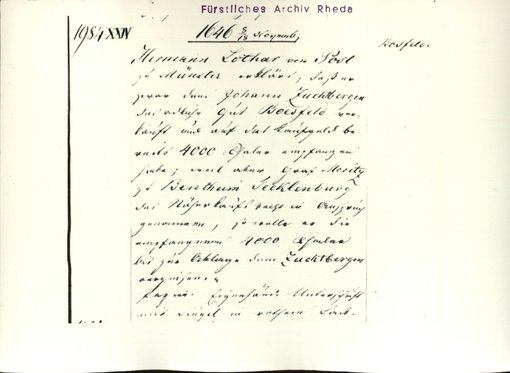 Fürstliches Archiv Rheda
1984 XXIV
1646 8/18 Novemb,
Boesfeld.
Hermann Lothar von Post
zu Münster erklärt, daß er
zwar dem Johann Zuchtbergen
das adlige Gut Boesfeld ver-
kauft und auf das Kaufgeld be
reits 4000 Thaler empfangen
habe; weil aber Graf Moritz
zu Bentheim Tecklenburg
das Näherkaufsrecht in Anspruch
genommen, so wolle er die
empfangenen 4000 Thaler
bis zur Ablage dem Zuchtbergen
verzinsen.
Papier. Eigenhänd. Unterschrift
und Siegel in rothem Lack.